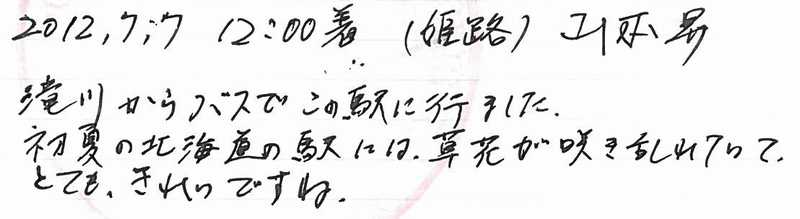 2012,7,7 12:00着 (姫路)
滝川からバスでこの駅に行ました.
初夏の北海道の駅には、草花が咲き乱れていて、
とても、きれいですね.